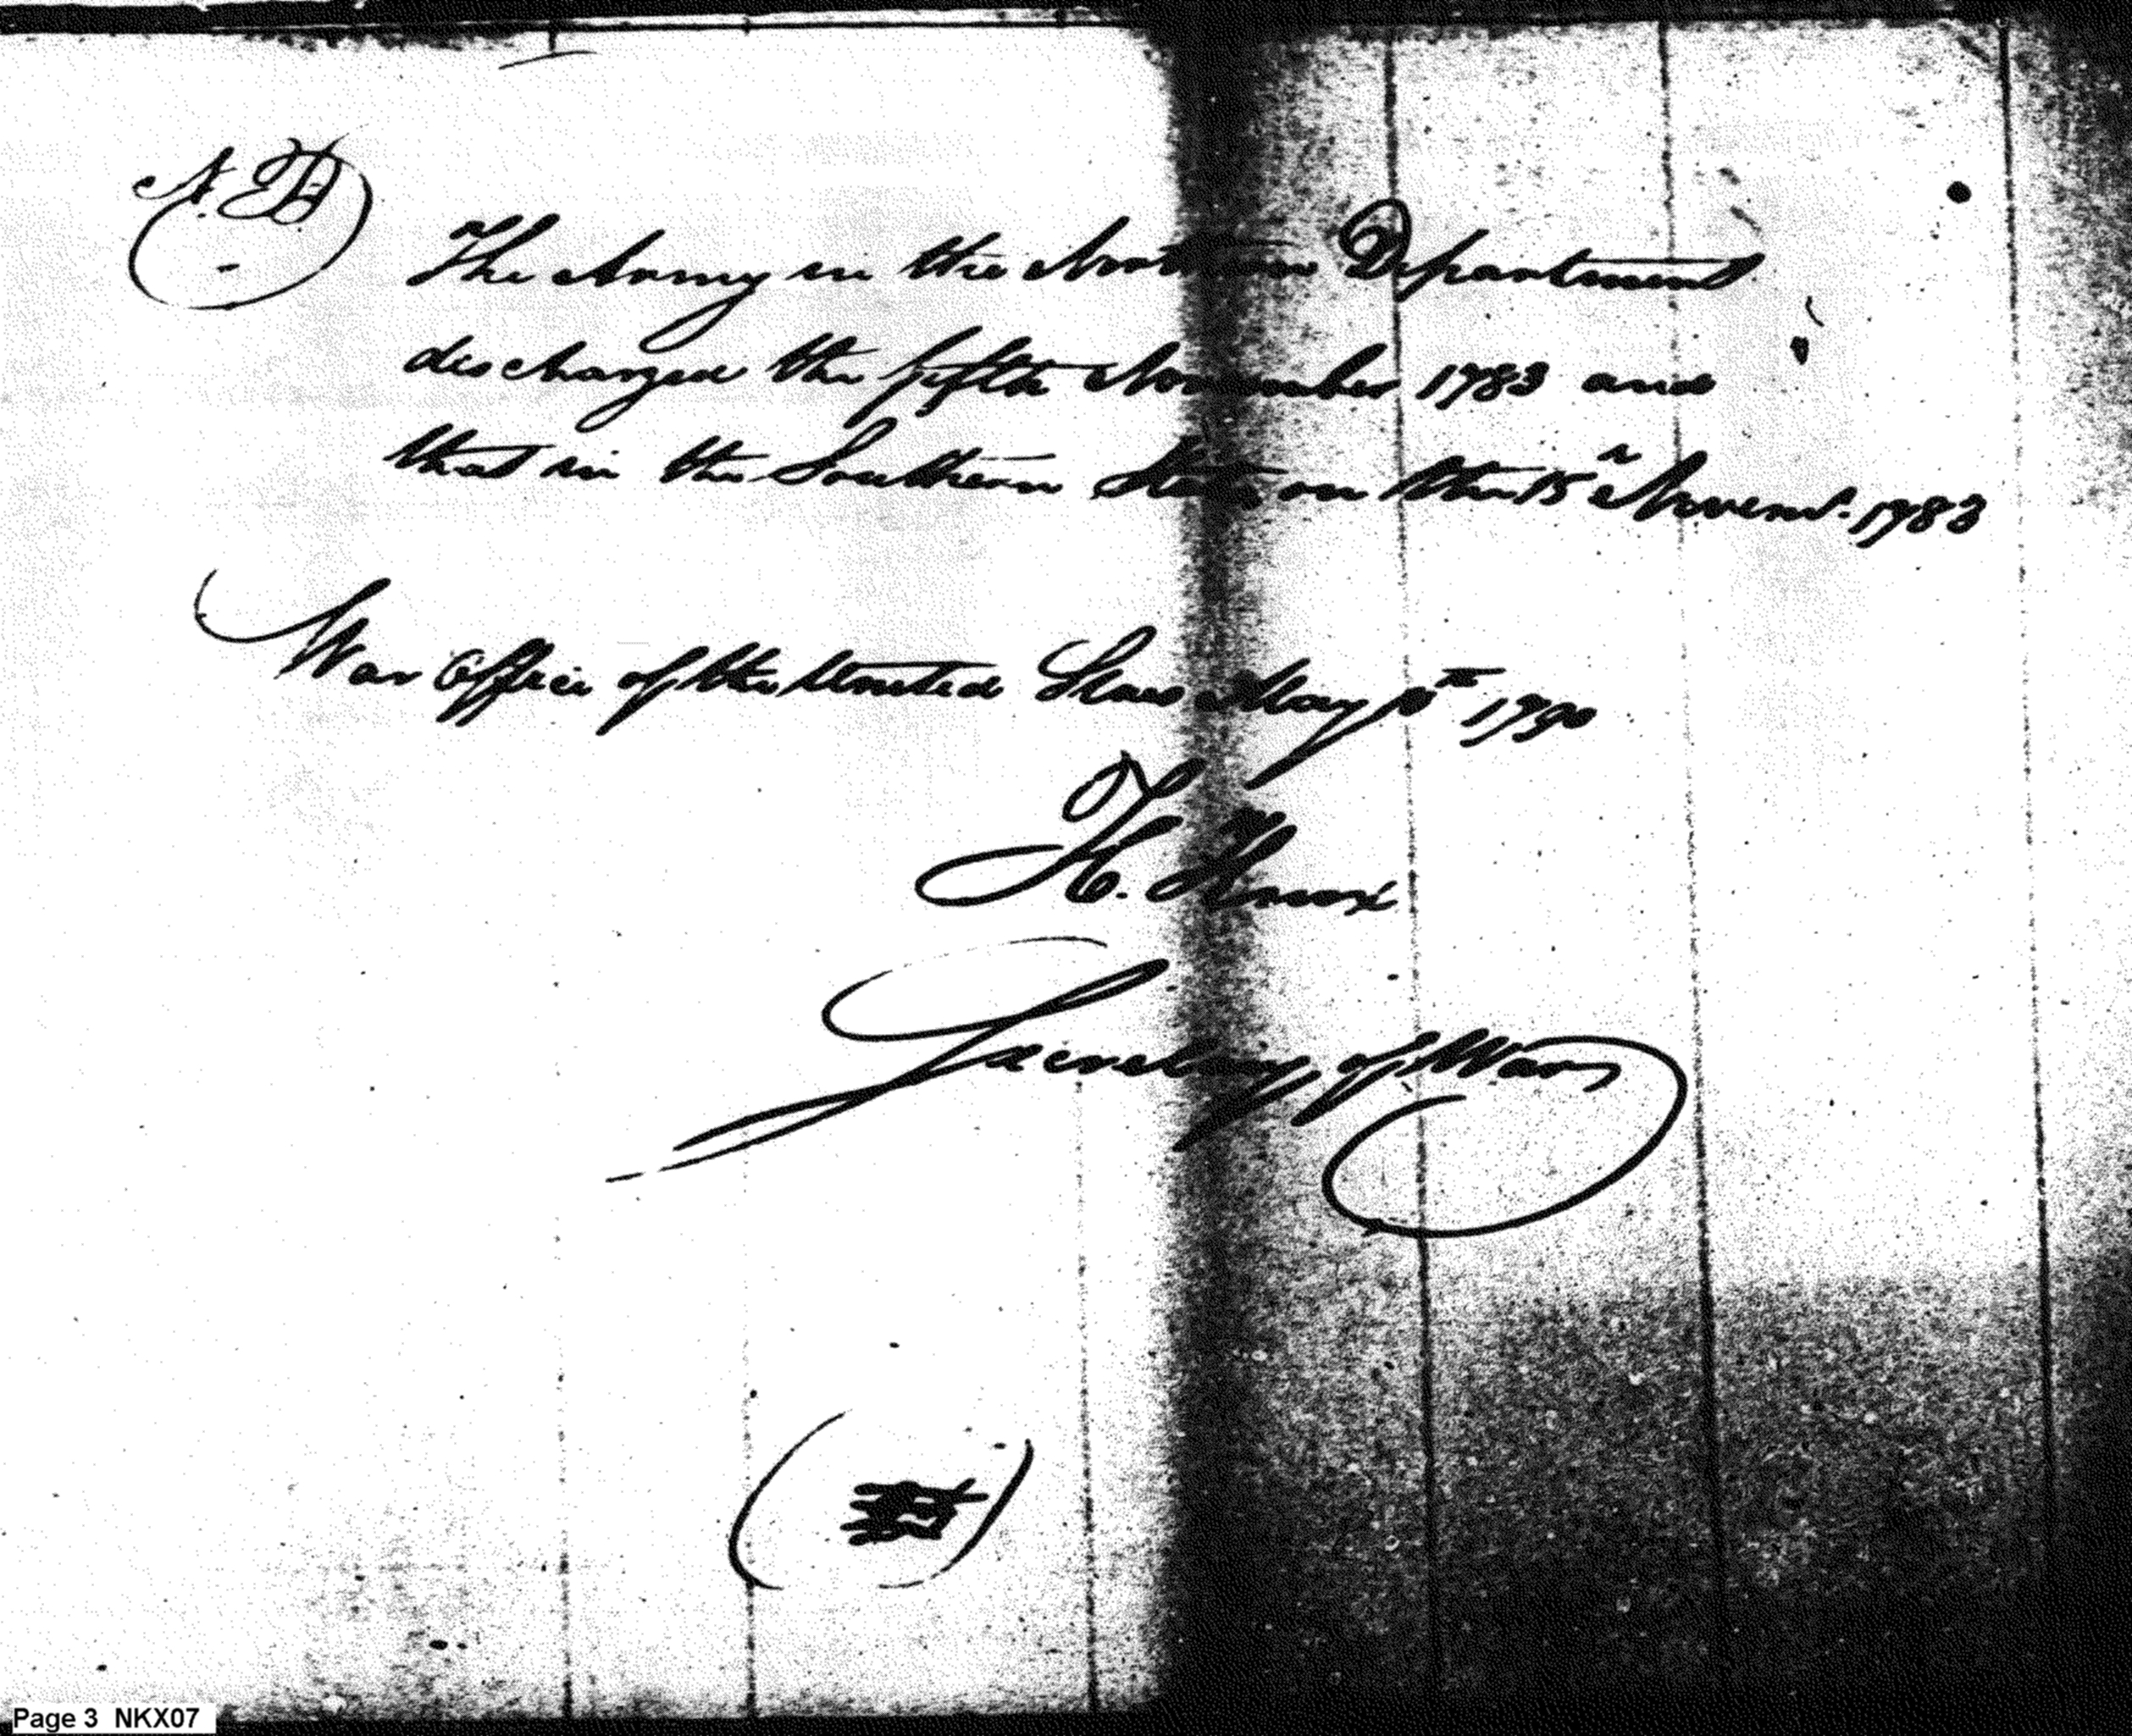 N.B.
The Army in the Northern Department
discharged the fifth November 1783 and
that in the Southern States on the 15th Novemr. 1783
War Office of the United States May 10th 1790
H. Knox
Secretary of War
Page 3 NKX07